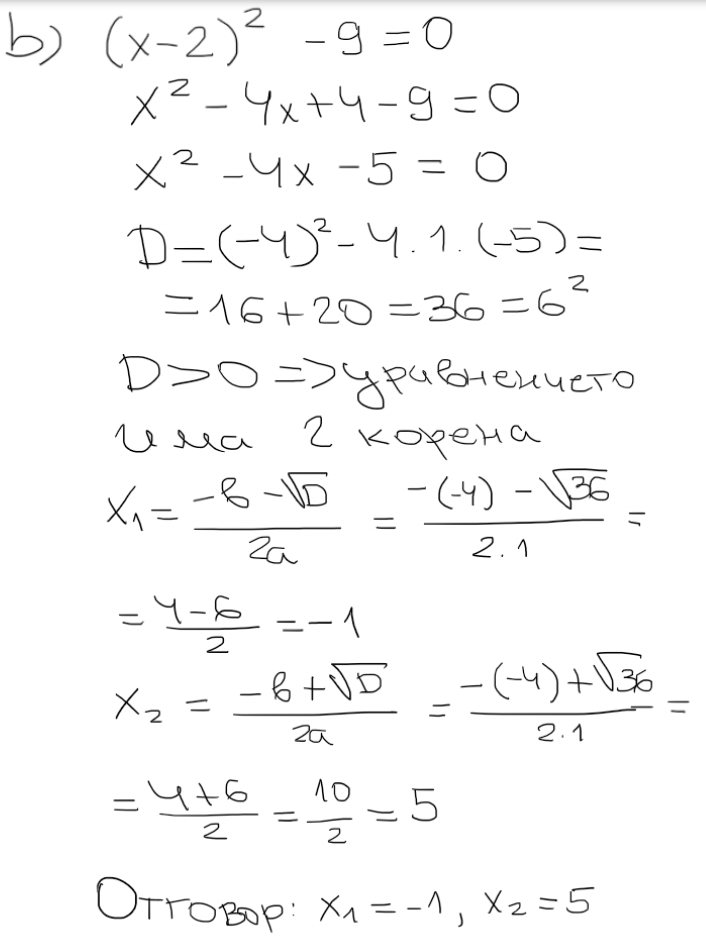 b) (x-2)² -9=0
x² -4x+4-9=0
x² -4x -5 = 0
D=(-4)²-4.1.(-5)=
=16+20=36=6²
D>0 => уравнението
има 2 корена
x₁= (-b-√D)/(2a) = (-(-4) - √36)/(2.1) =
= (4-6)/2 = -1
x₂ = (-b+√D)/(2a) = (-(-4)+√36)/(2.1) =
= (4+6)/2 = 10/2 = 5
Отговор: x₁=-1, x₂=5